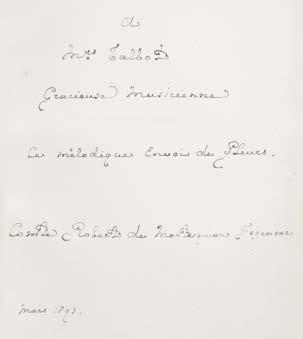 A
Mrs Talbot
Gracieuse Musicienne
Ce mélodique Envoi de Fleurs.
Comte Robert de Montesquiou Fezensac
Mars 1893.